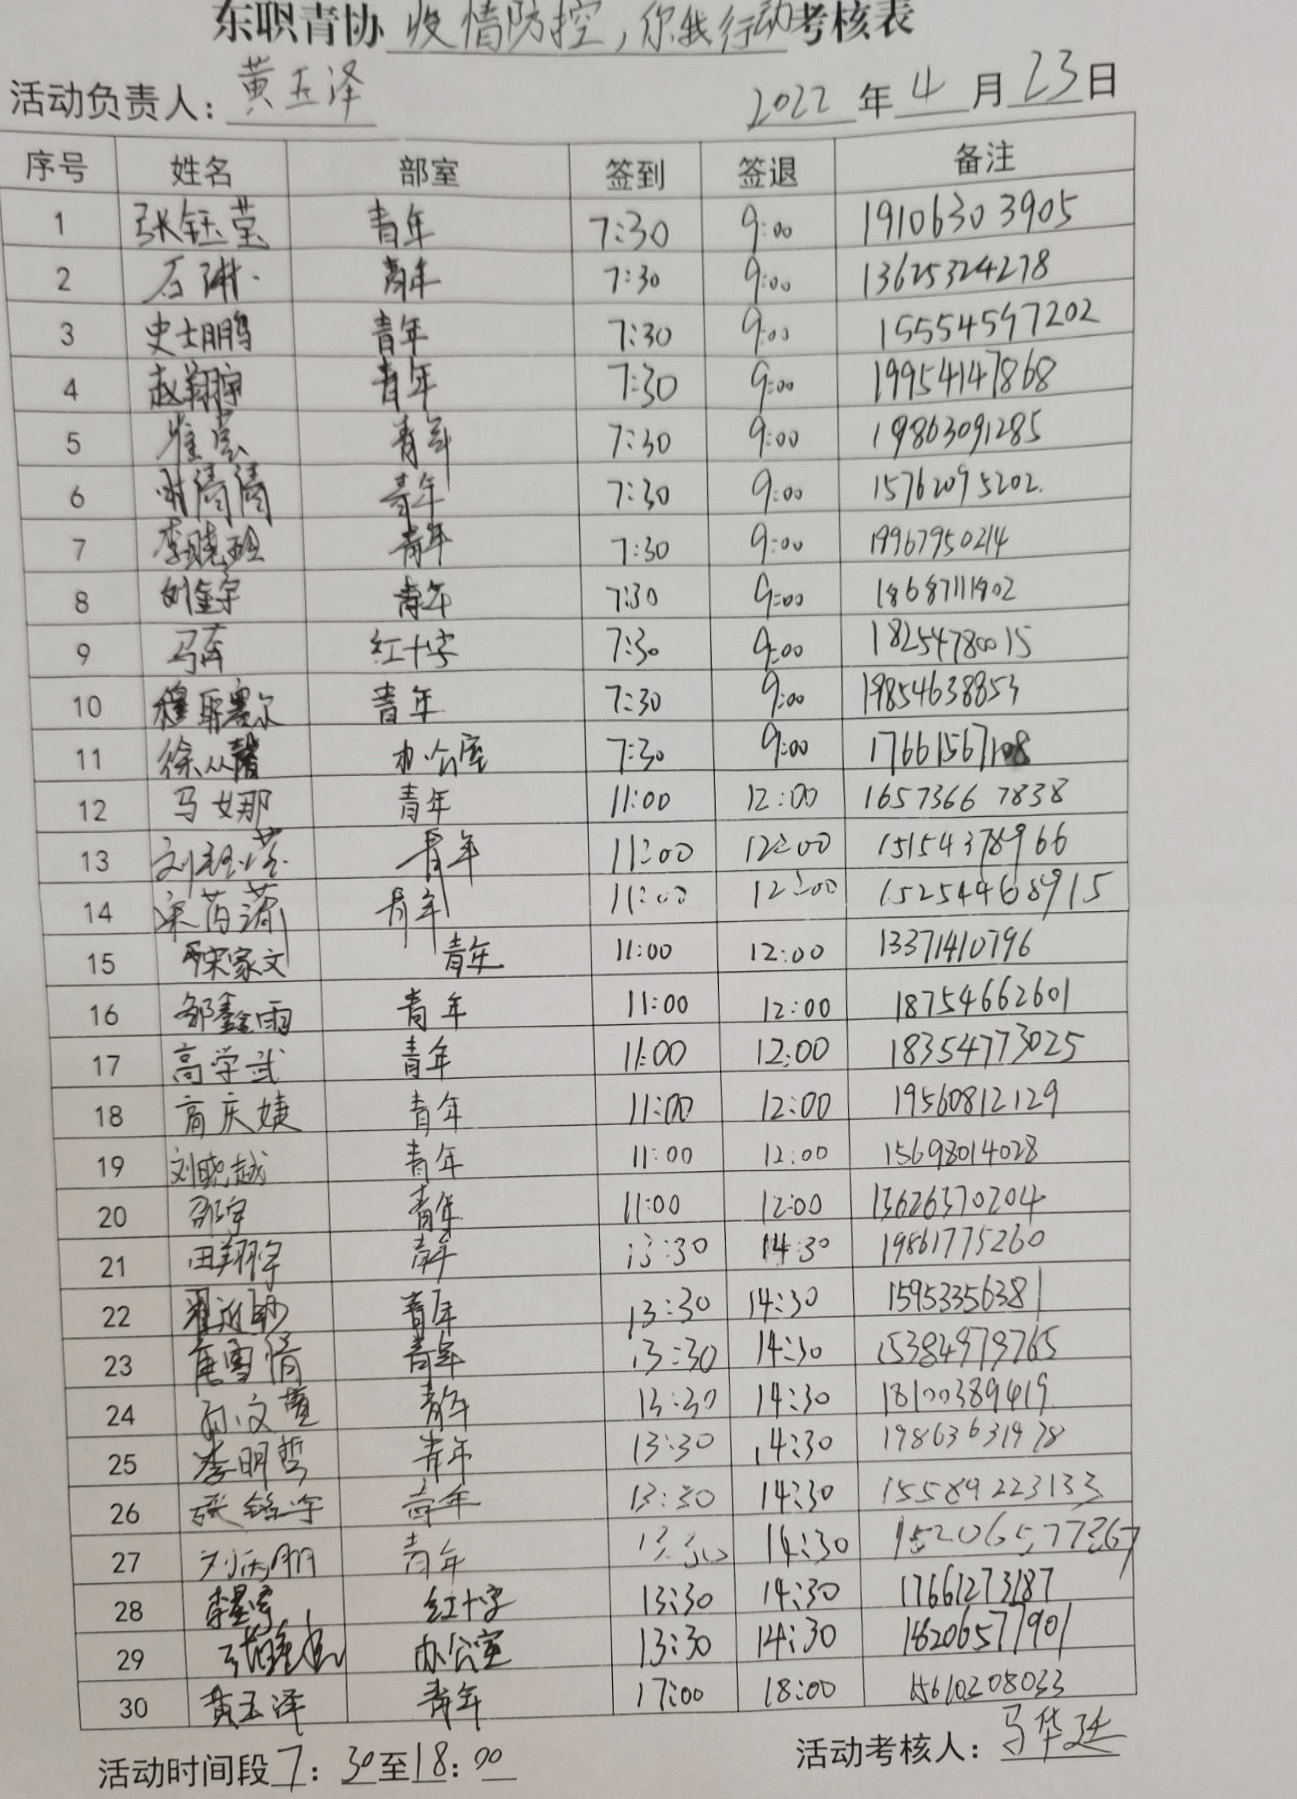 东职青协 疫情防控，你我行动 考核表
活动负责人：黄玉泽 2022 年 4 月 23 日
序号 姓名 部室 签到 签退 备注
1 张钰莹 青年 7:30 9:00 19106303905
2 石琳 青年 7:30 9:00 13625324278
3 史士鹏 青年 7:30 9:00 15554597202
4 赵翔宇 青年 7:30 9:00 19954147868
5 青年 7:30 9:00 19863091285
6 时倩倩 青年 7:30 9:00 15762095202
7 李晓 青年 7:30 9:00 19967950214
8 刘金宇 青年 7:30 9:00 18687111902
9 马奔 红十字 7:30 9:00 18254780015
10 穆耶赛尔 青年 7:30 9:00 19854638853
11 徐从馨 办公室 7:30 9:00 17661567108
12 马女那 青年 11:00 12:00 16573667838
13 刘 青年 11:00 12:00 15154378966
14 宋芮潇 青年 11:00 12:00 15254468915
15 宋家文 青年 11:00 12:00 13371410796
16 邹鑫雨 青年 11:00 12:00 18754662601
17 高学武 青年 11:00 12:00 18354773025
18 高庆婕 青年 11:00 12:00 19560812129
19 刘晓越 青年 11:00 12:00 15698014028
20 邵宇 青年 11:00 12:00 13626370204
21 田翔宇 青年 13:30 14:30 19861775260
22 青年 13:30 14:30 15953356381
23 雪倩 青年 13:30 14:30 15384979765
24 文萱 青年 13:30 14:30 18100389419
25 李明哲 青年 13:30 14:30 19863631978
26 张铭宇 青年 13:30 14:30 15589223133
27 刘庆朋 青年 13:30 14:30
28 红十字 13:30 14:30 17661273187
29 张 办公室 13:30 14:30 18206577901
30 黄玉泽 青年 17:00 18:00 15610208033
活动时间段 7：30 至 18：00 活动考核人：马华廷